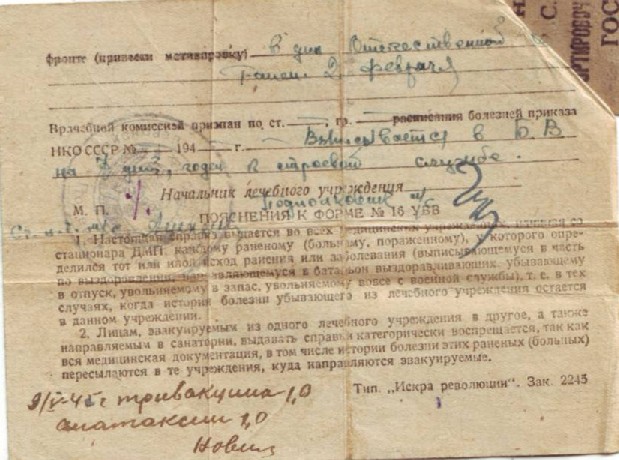 фронте (привести мотивировку) в дни Отечественной
ранен 2 февраля
Врачебной комиссией признан по ст. гр. расписания болезней приказа
НКО СССР № 194 г. Выписывается в Б.В
на 7 дней, годен в строевой службе.
Начальник лечебного учреждения
М. П. подполковник м/с
ПОЯСНЕНИЯ К ФОРМЕ № 16 УВВ
1. Настоящая справка выдается во всех медицинских учреждениях, начиная со
стационара ДМП, каждому раненому (больному, пораженному), у которого опре-
делился тот или иной исход ранения или заболевания (выписывающемуся в часть
по выздоровлении, направляющемуся в батальон выздоравливающих, убывающему
в отпуск, увольняемому в запас, увольняемому вовсе с военной службы), т. е. в тех
случаях, когда история болезни убывающего из лечебного учреждения остается
в данном учреждении.
2. Лицам, эвакуируемым из одного лечебного учреждения в другое, а также
направляемым в санатории, выдавать справки категорически воспрещается, так как
вся медицинская документация, в том числе истории болезни этих раненых (больных)
пересылаются в те учреждения, куда направляются эвакуируемые.
Тип. „Искра революции". Зак. 2245
9/V-45 г тривакцина 1,0
анатаксин 1,0